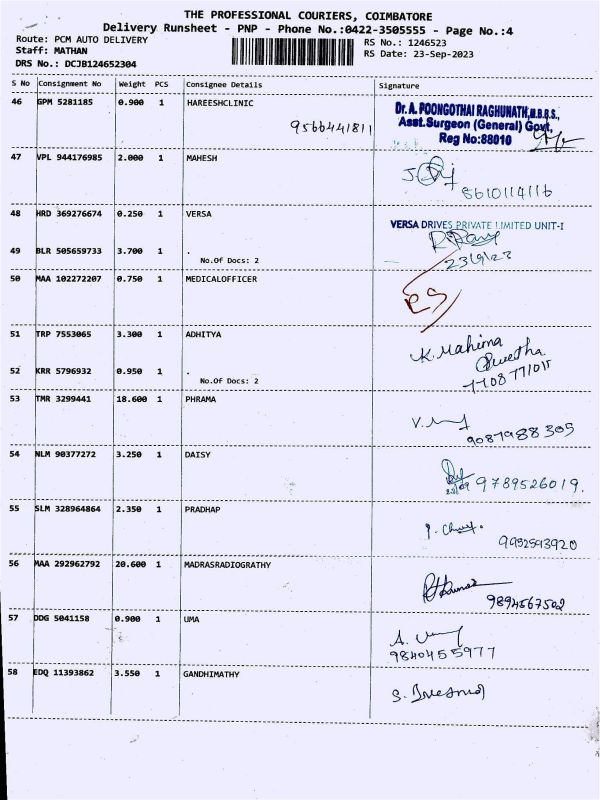 THE PROFESSIONAL COURIERS, COIMBATORE
Delivery Runsheet - PNP - Phone No.:0422-3505555 - Page No.:4
Route: PCM AUTO DELIVERY
RS No.: 1246523
Staff: MATHAN
RS Date: 23-Sep-2023
DRS No.: DCJB124652304
S No Consignment No Weight PCS Consignee Details Signature
46 GPM 5281185 0.900 1 HAREESHCLINIC
9566441811
Dr. A. POONGOTHAI RAGHUNATH, M.B.B.S.,
Asst. Surgeon (General) Govt,
Reg No:88010
47 VPL 944176985 2.000 1 MAHESH
8610114116
48 HRD 369276674 0.250 1 VERSA
VERSA DRIVES PRIVATE LIMITED UNIT-I
49 BLR 505659733 3.700 1 .
No.Of Docs: 2
23/9/23
50 MAA 102272207 0.750 1 MEDICALOFFICER
51 TRP 7553065 3.300 1 ADHITYA
K. Mahima
Swetha
52 KRR 5796932 0.950 1 .
No.Of Docs: 2
7708771015
53 TMR 3299441 18.600 1 PHRAMA
9087988305
54 NLM 90377272 3.250 1 DAISY
9789526019.
55 SLM 328964864 2.350 1 PRADHAP
9952593920
56 MAA 292962792 20.600 1 MADRASRADIOGRATHY
9894567502
57 DDG 5041158 0.900 1 UMA
9840455977
58 EDQ 11393862 3.550 1 GANDHIMATHY